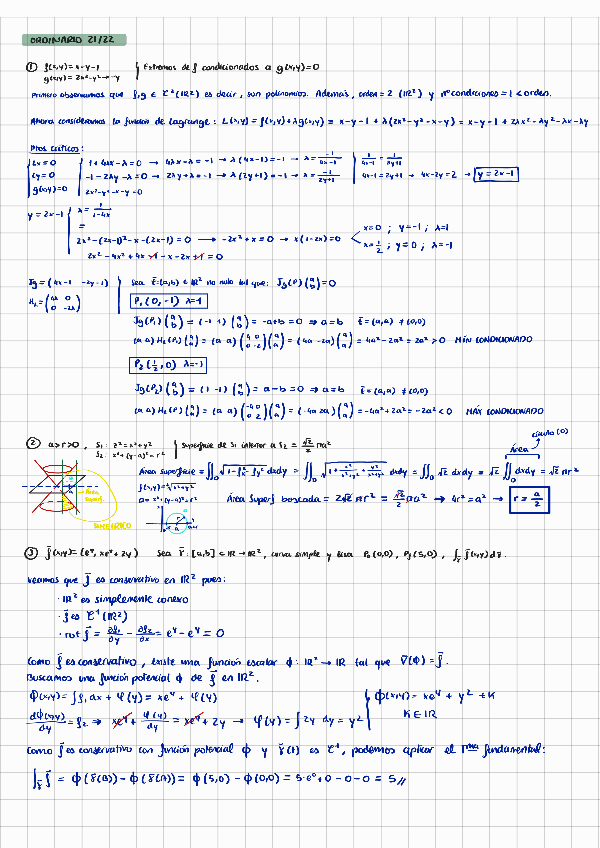 ORDINARIO 21/22
① f(x,y) = x-y-1 Extremos de f condicionados a g(x,y)=0
g(x,y) = 2x²-y²-x-y
Primero observamos que f,g ∈ C²(ℝ²) es decir, son polinomios. Además, orden=2 (ℝ²) y nº condiciones=1 < orden.
Ahora consideramos la función de Lagrange: L(x,y) = f(x,y)+λg(x,y) = x-y-1+λ(2x²-y²-x-y) = x-y-1+2λx²-λy²-λx-λy
Ptos críticos:
Lx=0 1+4λx-λ=0 → 4λx-λ=-1 → λ(4x-1)=-1 → λ=-1/(4x-1) 1/(4x-1) = 1/(2y+1)
Ly=0 -1-2λy-λ=0 → 2λy+λ=-1 → λ(2y+1)=-1 → λ=-1/(2y+1) 4x-1=2y+1 → 4x-2y=2 → y=2x-1
g(x,y)=0 2x²-y²-x-y=0
y=2x-1 λ=1/(1-4x)
=
2x²-(2x-1)²-x-(2x-1)=0 → -2x²+x=0 → x(1-2x)=0 x=0; y=-1; λ=1
2x²-4x²+4x-1-x-2x+1=0 x=1/2; y=0; λ=-1
Jg=(4x-1 -2y-1) Sea t̄=(a,b) ∈ ℝ² no nulo tal que: Jg(P)(a b)=0
H_L=(4λ 0 0 -2λ) P₁(0,-1) λ=1
Jg(P₁)(a b) = (-1 1)(a b) = -a+b=0 ⇒ a=b t̄=(a,a) ≠(0,0)
(a a)H_L(P₁)(a a) = (a a)(4 0 0 -2)(a a) = (4a -2a)(a a) = 4a²-2a²=2a²>0 MÍN CONDICIONADO
P₂(1/2,0) λ=-1
Jg(P₂)(a b) = (1 -1)(a b) = a-b=0 ⇒ a=b t̄=(a,a) ≠(0,0)
(a a)H_L(P₂)(a a) = (a a)(-4 0 0 2)(a a) = (-4a 2a)(a a) = -4a²+2a²=-2a²<0 MÁX CONDICIONADO
② a>r>0, S₁: z²=x²+y² Superficie de S₁ interior a S₂ = √2/2 πa²
S₂: x²+(y-a)²=r²
círculo (O)
Área
Área superficie = ∬_D √(1+fx²+fy²) dxdy = ∬_D √(1+x²/(x²+y²)+y²/(x²+y²)) dxdy = ∬_D √2 dxdy = √2 ∬_D dxdy = √2πr²
f(x,y)=√(x²+y²)
D = x²+(y-a)²=r²
Área superf buscada = 2√2πr² = √2/2 πa² → 4r²=a² → r=a/2
③ f̄(x,y)=(eʸ, xeʸ+2y) Sea γ̄:[a,b]⊂ℝ→ℝ², curva simple y lisa P₀(0,0), P_f(5,0), ∫_γ̄ f̄(x,y)dγ̄.
Veamos que f̄ es conservativo en ℝ² pues:
· ℝ² es simplemente conexo
· f̄ es C¹(ℝ²)
· rot f̄ = ∂f₁/∂y - ∂f₂/∂x = eʸ-eʸ=0
Como f̄ es conservativo, existe una función escalar ϕ: ℝ²→ℝ tal que ∇(ϕ)=f̄.
Buscamos una función potencial ϕ de f̄ en ℝ².
ϕ(x,y)=∫f₁dx+φ(y)=xeʸ+φ(y) ϕ(x,y)=xeʸ+y²+K
dϕ(x,y)/dy = f₂ ⇒ xeʸ+φ(y)/dy = xeʸ+2y → φ(y)=∫2y dy=y² K∈ℝ
Como f̄ es conservativo con función potencial ϕ y γ̄(t) es C¹, podemos aplicar el Tᵐᵃ fundamental:
∫_γ̄ f̄ = ϕ(γ̄(B))-ϕ(γ̄(A)) = ϕ(5,0)-ϕ(0,0) = 5·e⁰+0-0-0=5//